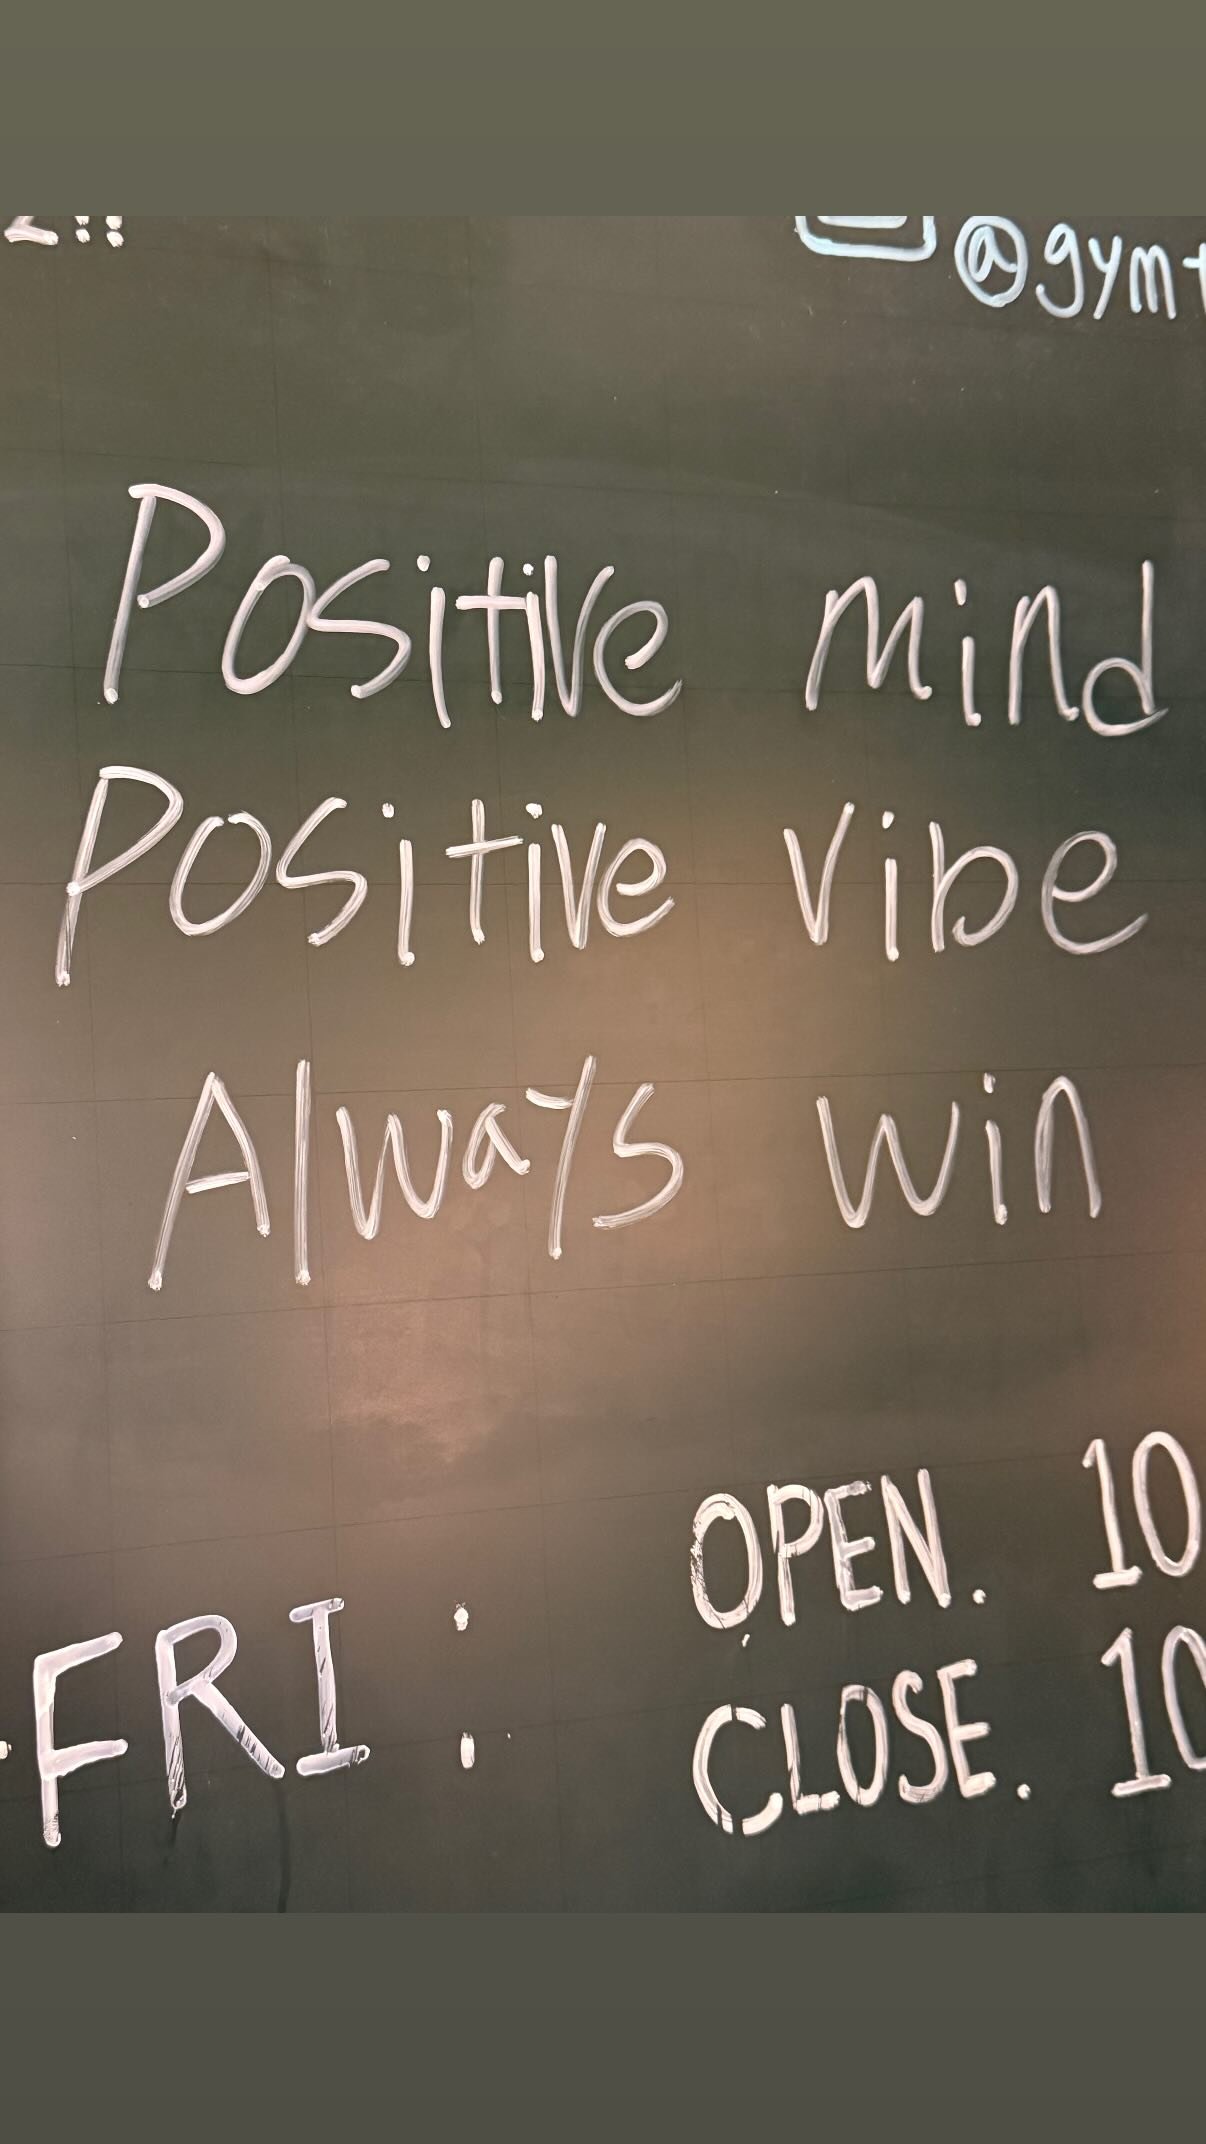 Positive mind
Positive vibe
Always win
OPEN. 10
FRI :
CLOSE. 10